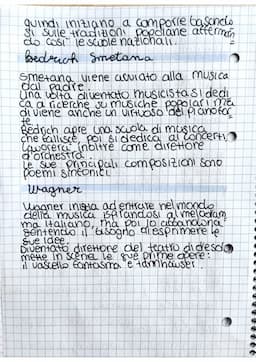 quindi iniziano a comporre basando
si sulle tradizioni popolane afferman
do così le scuole nazionali.
Bedrich Smetana
Smetana, viene avviato alla musica
dal padre.
Una volta diventato musicista si dedi
ca a ricerche su musiche popolari ma
diviene anche un virtuoso del pianofor
te
Bedrich apre una scuola di musica
che fallisce, poi si dedica ai concerti.
Lavorerà inoltre come direttore
d'orchestra.
Le sue principali composizioni sono
poemi sinfonici.
Wagner
Wagner inizia ad entrare nel mondo
della musica ispirandosi al melodram
ma italiano, ma poi lo abbandona,
sentendo il bisogno di esprimere le
sue idee.
Diventato direttore del teatro di
mette in scena le sue prime opere:
il vascello fantasma e tannhauser.